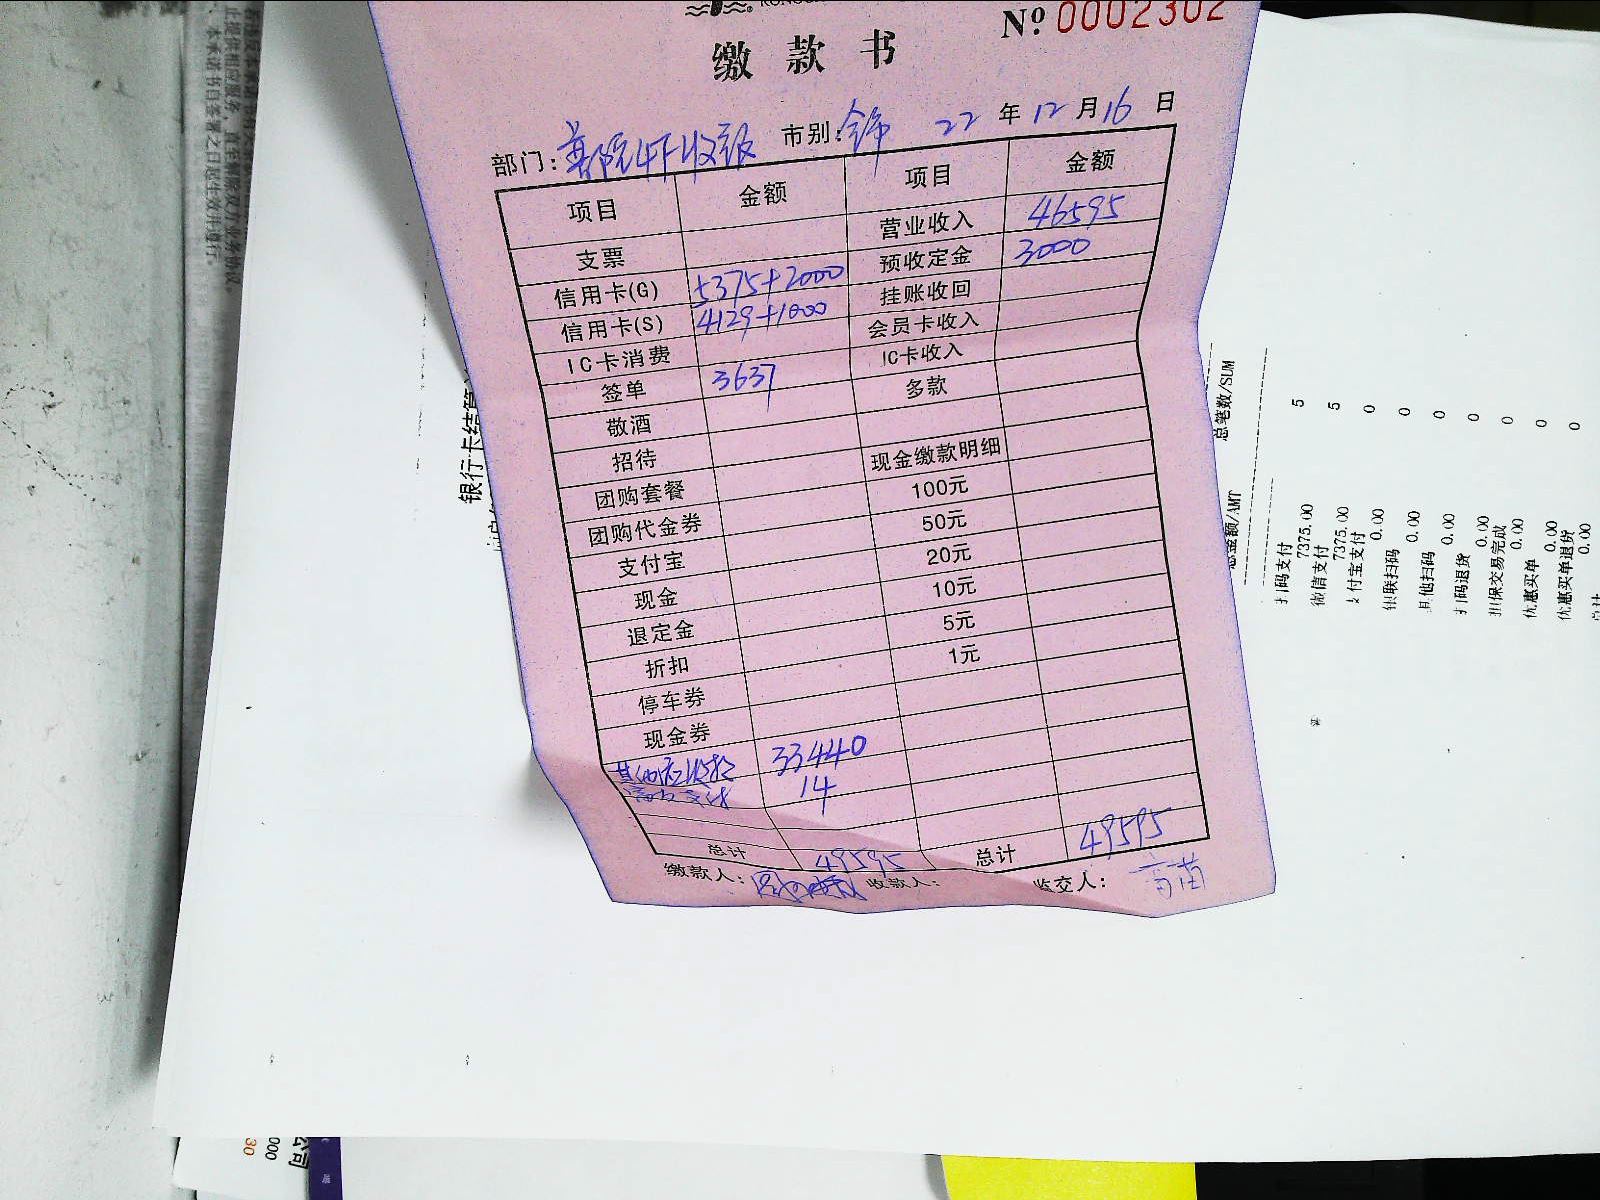 № 0002302
缴款书
部门: 市别: 22 年 12 月 16 日
项目 金额 项目 金额
支票 营业收入 46595
信用卡(G) 5375+2000 预收定金 3000
信用卡(S) 4129+1000 挂账收回
IC卡消费 会员卡收入
签单 3637 IC卡收入
敬酒 多款
招待 现金缴款明细
团购套餐 100元
团购代金券 50元
支付宝 20元
现金 10元
退定金 5元
折扣 1元
停车券
现金券
33440
14
总计 49595 总计 49595
缴款人: 收款人: 监交人:
银行卡结算
总笔数/SUM
总金额/AMT
扫码支付 7375.00 5
微信支付 7375.00 5
支付宝支付 0.00 0
银联扫码 0.00 0
其他扫码 0.00 0
扫码退货 0.00 0
担保交易完成 0.00 0
优惠买单 0.00 0
优惠买单退货 0.00 0
总计
止提供相应服务,直至解除双方业务协议。
本承诺书自签署之日起生效并履行。
公司
000
30